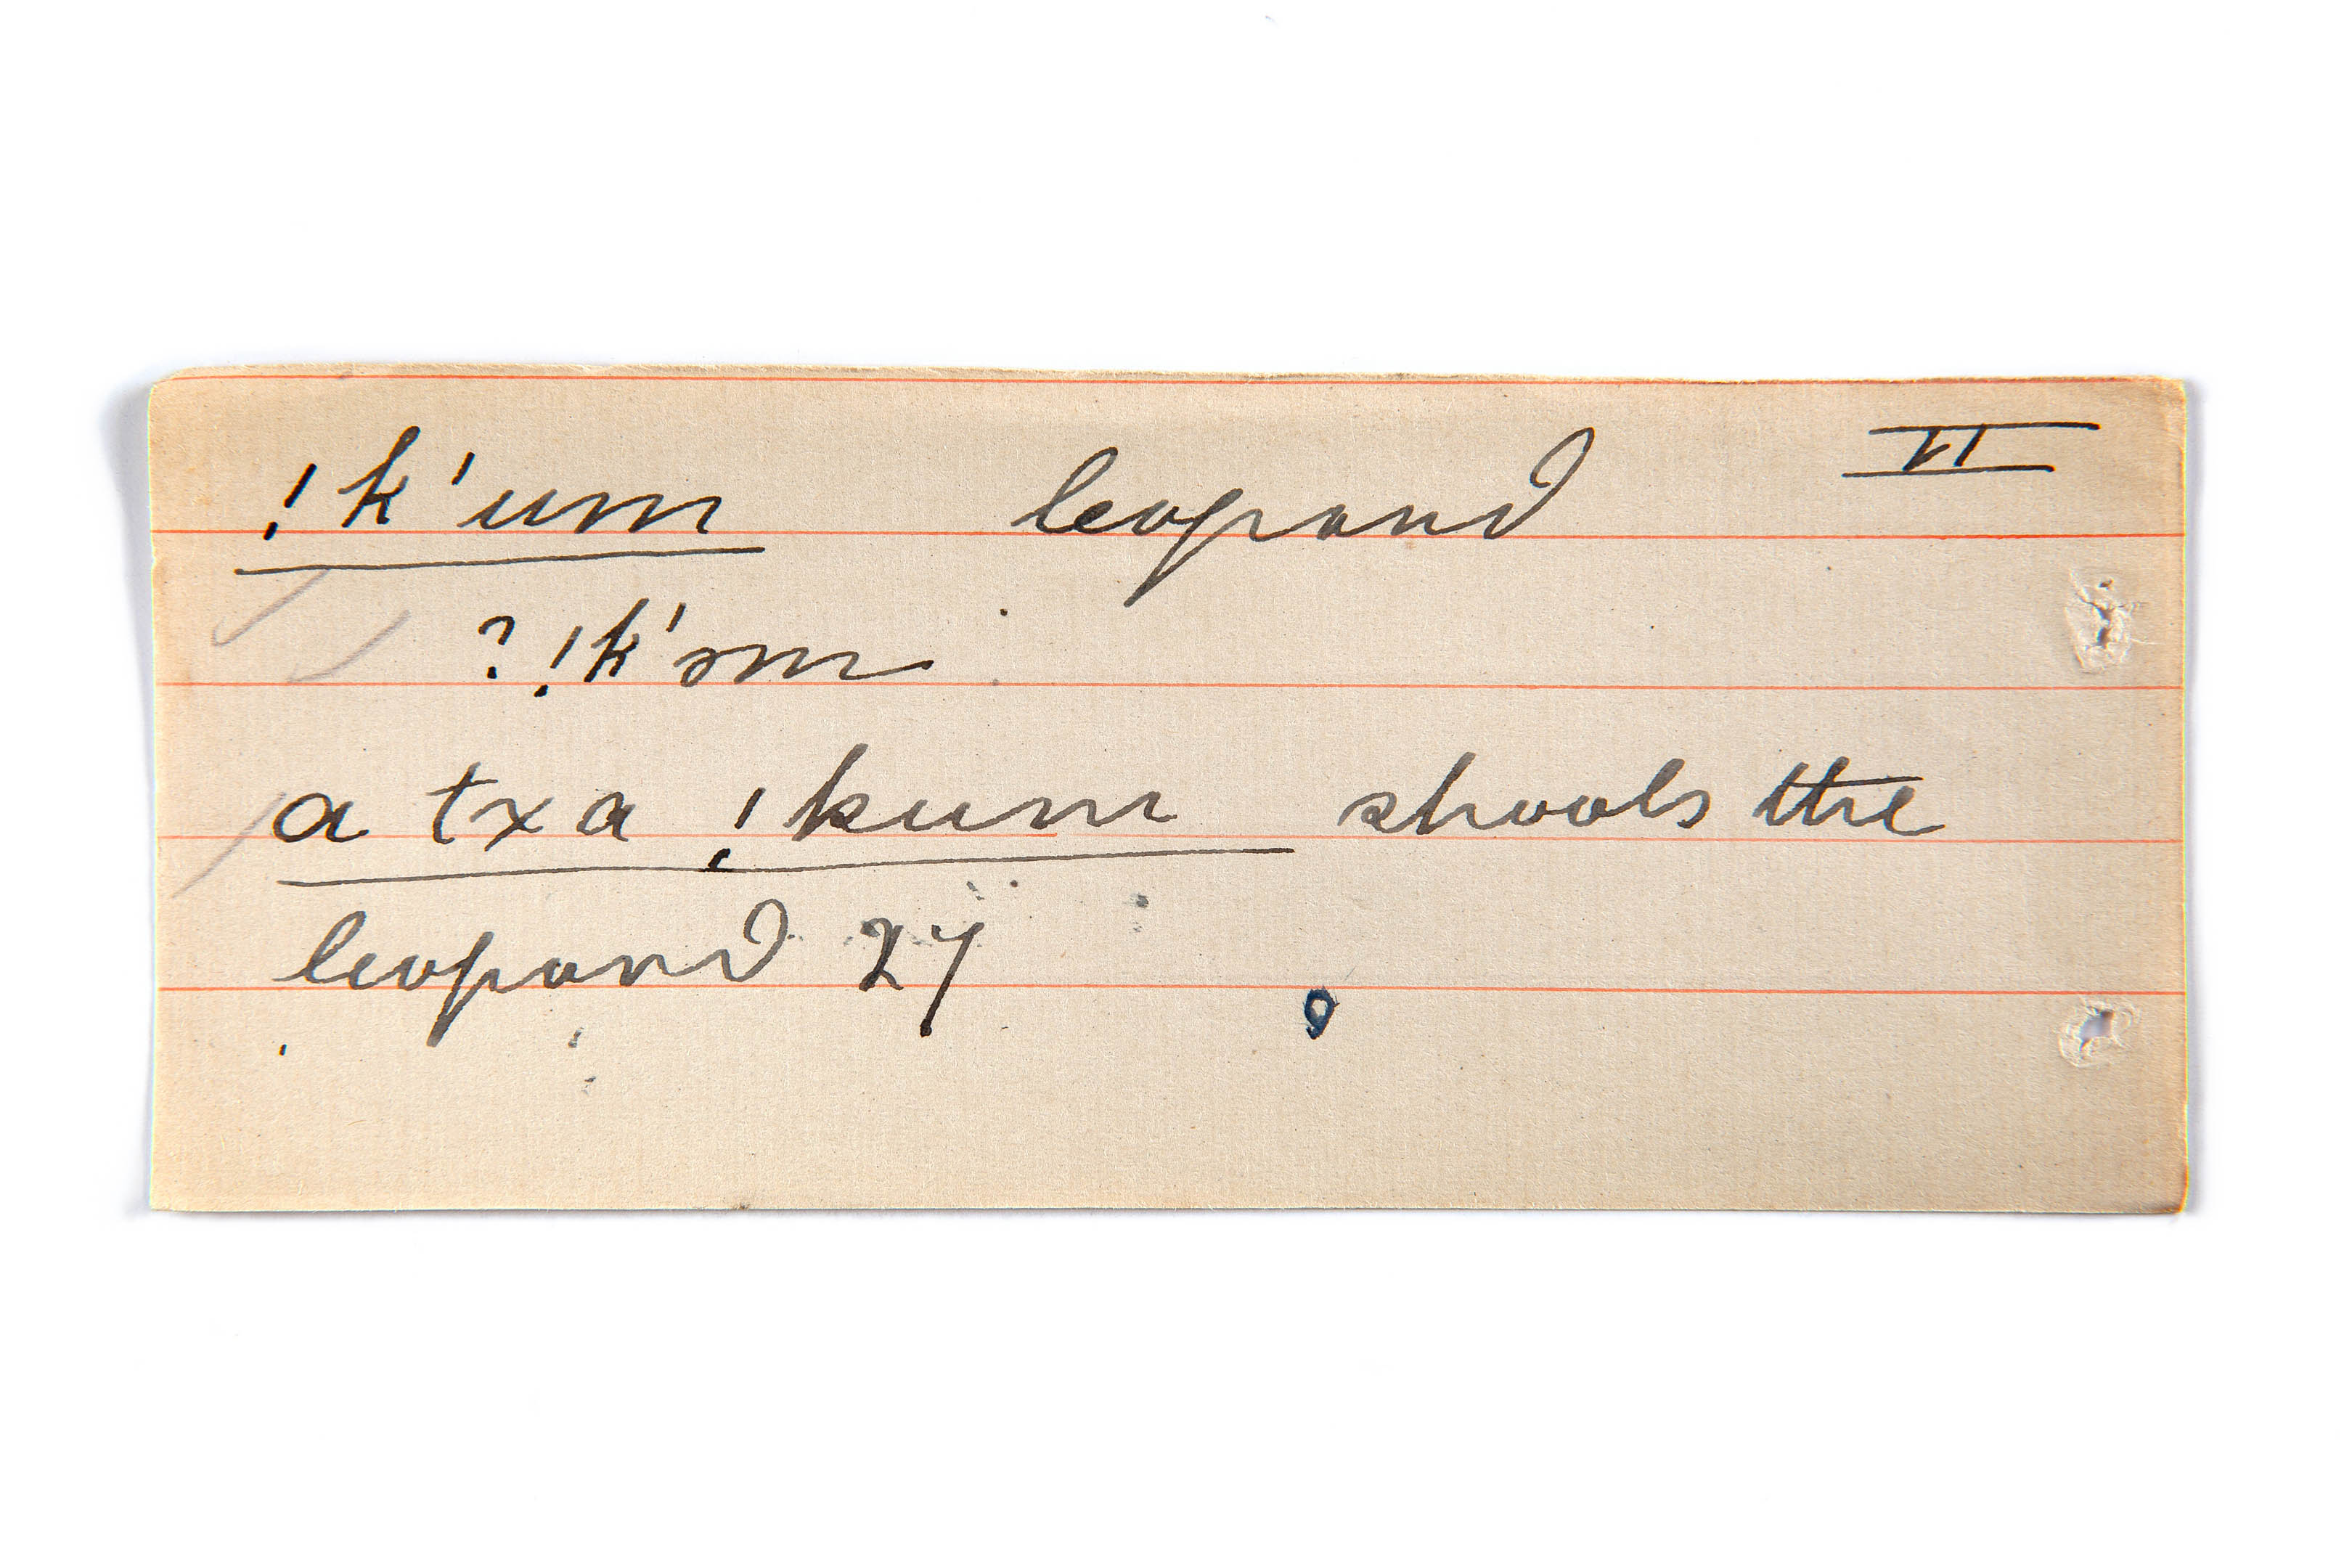 !k'um leopard VI
? !k'əm
a txa !kum shoots the
leopard 27